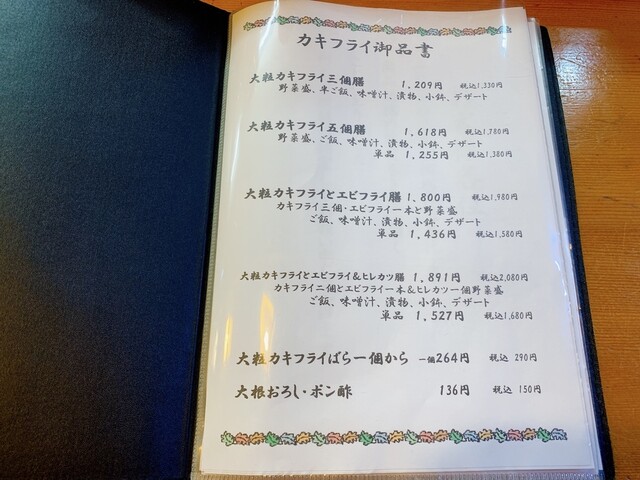 カキフライ御品書
大粒カキフライ三個膳 1,209円 税込1,330円
野菜盛、半ご飯、味噌汁、漬物、小鉢、デザート
大粒カキフライ五個膳 1,618円 税込1,780円
野菜盛、ご飯、味噌汁、漬物、小鉢、デザート
単品 1,255円 税込1,380円
大粒カキフライとエビフライ膳 1,800円 税込1,980円
カキフライ三個・エビフライ一本と野菜盛
ご飯、味噌汁、漬物、小鉢、デザート
単品 1,436円 税込1,580円
大粒カキフライとエビフライ&ヒレカツ膳 1,891円 税込2,080円
カキフライ二個とエビフライ一本&ヒレカツ一個野菜盛
ご飯、味噌汁、漬物、小鉢、デザート
単品 1,527円 税込1,680円
大粒カキフライばら一個から 一個264円 税込 290円
大根おろし・ポン酢 136円 税込 150円